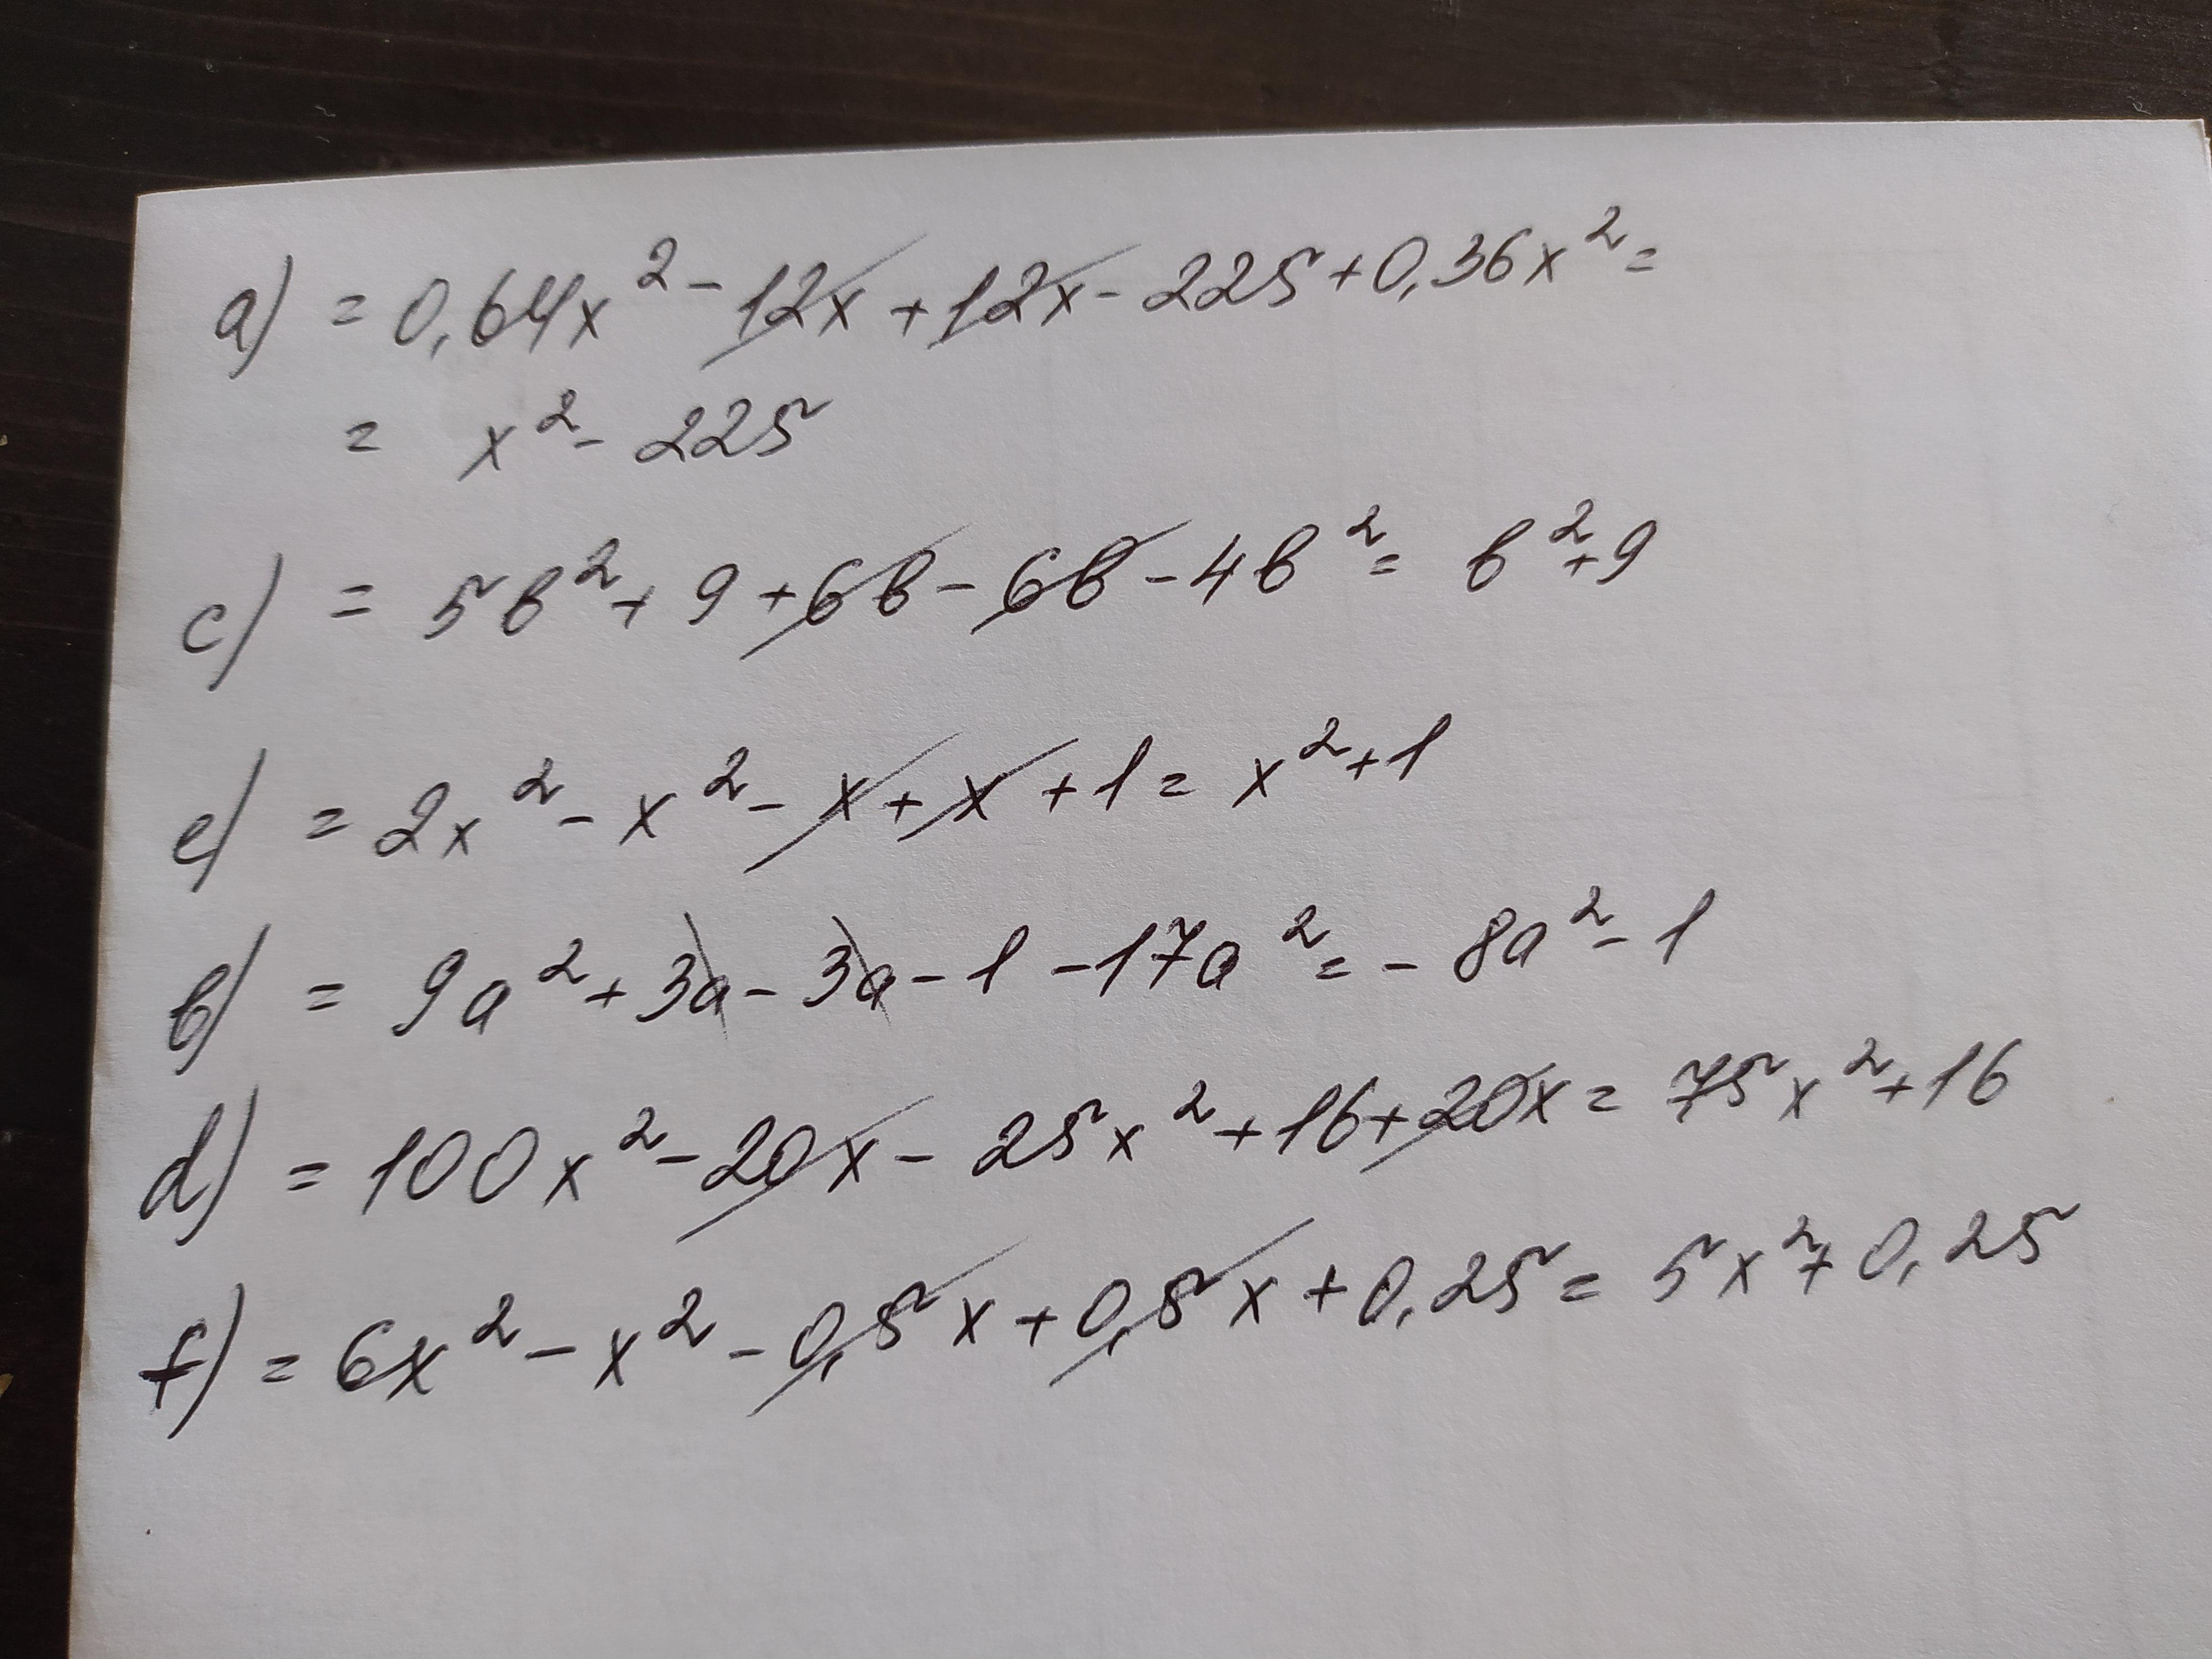 a) = 0,64x² - 12x + 12x - 225 + 0,36x² =
= x² - 225
c) = 5b² + 9 + 6b - 6b - 4b² = b² + 9
e) = 2x² - x² - x + x + 1 = x² + 1
b) = 9a² + 3a - 3a - 1 - 17a² = - 8a² - 1
d) = 100x² - 20x - 25x² + 16 + 20x = 75x² + 16
f) = 6x² - x² - 0,5x + 0,5x + 0,25 = 5x² + 0,25